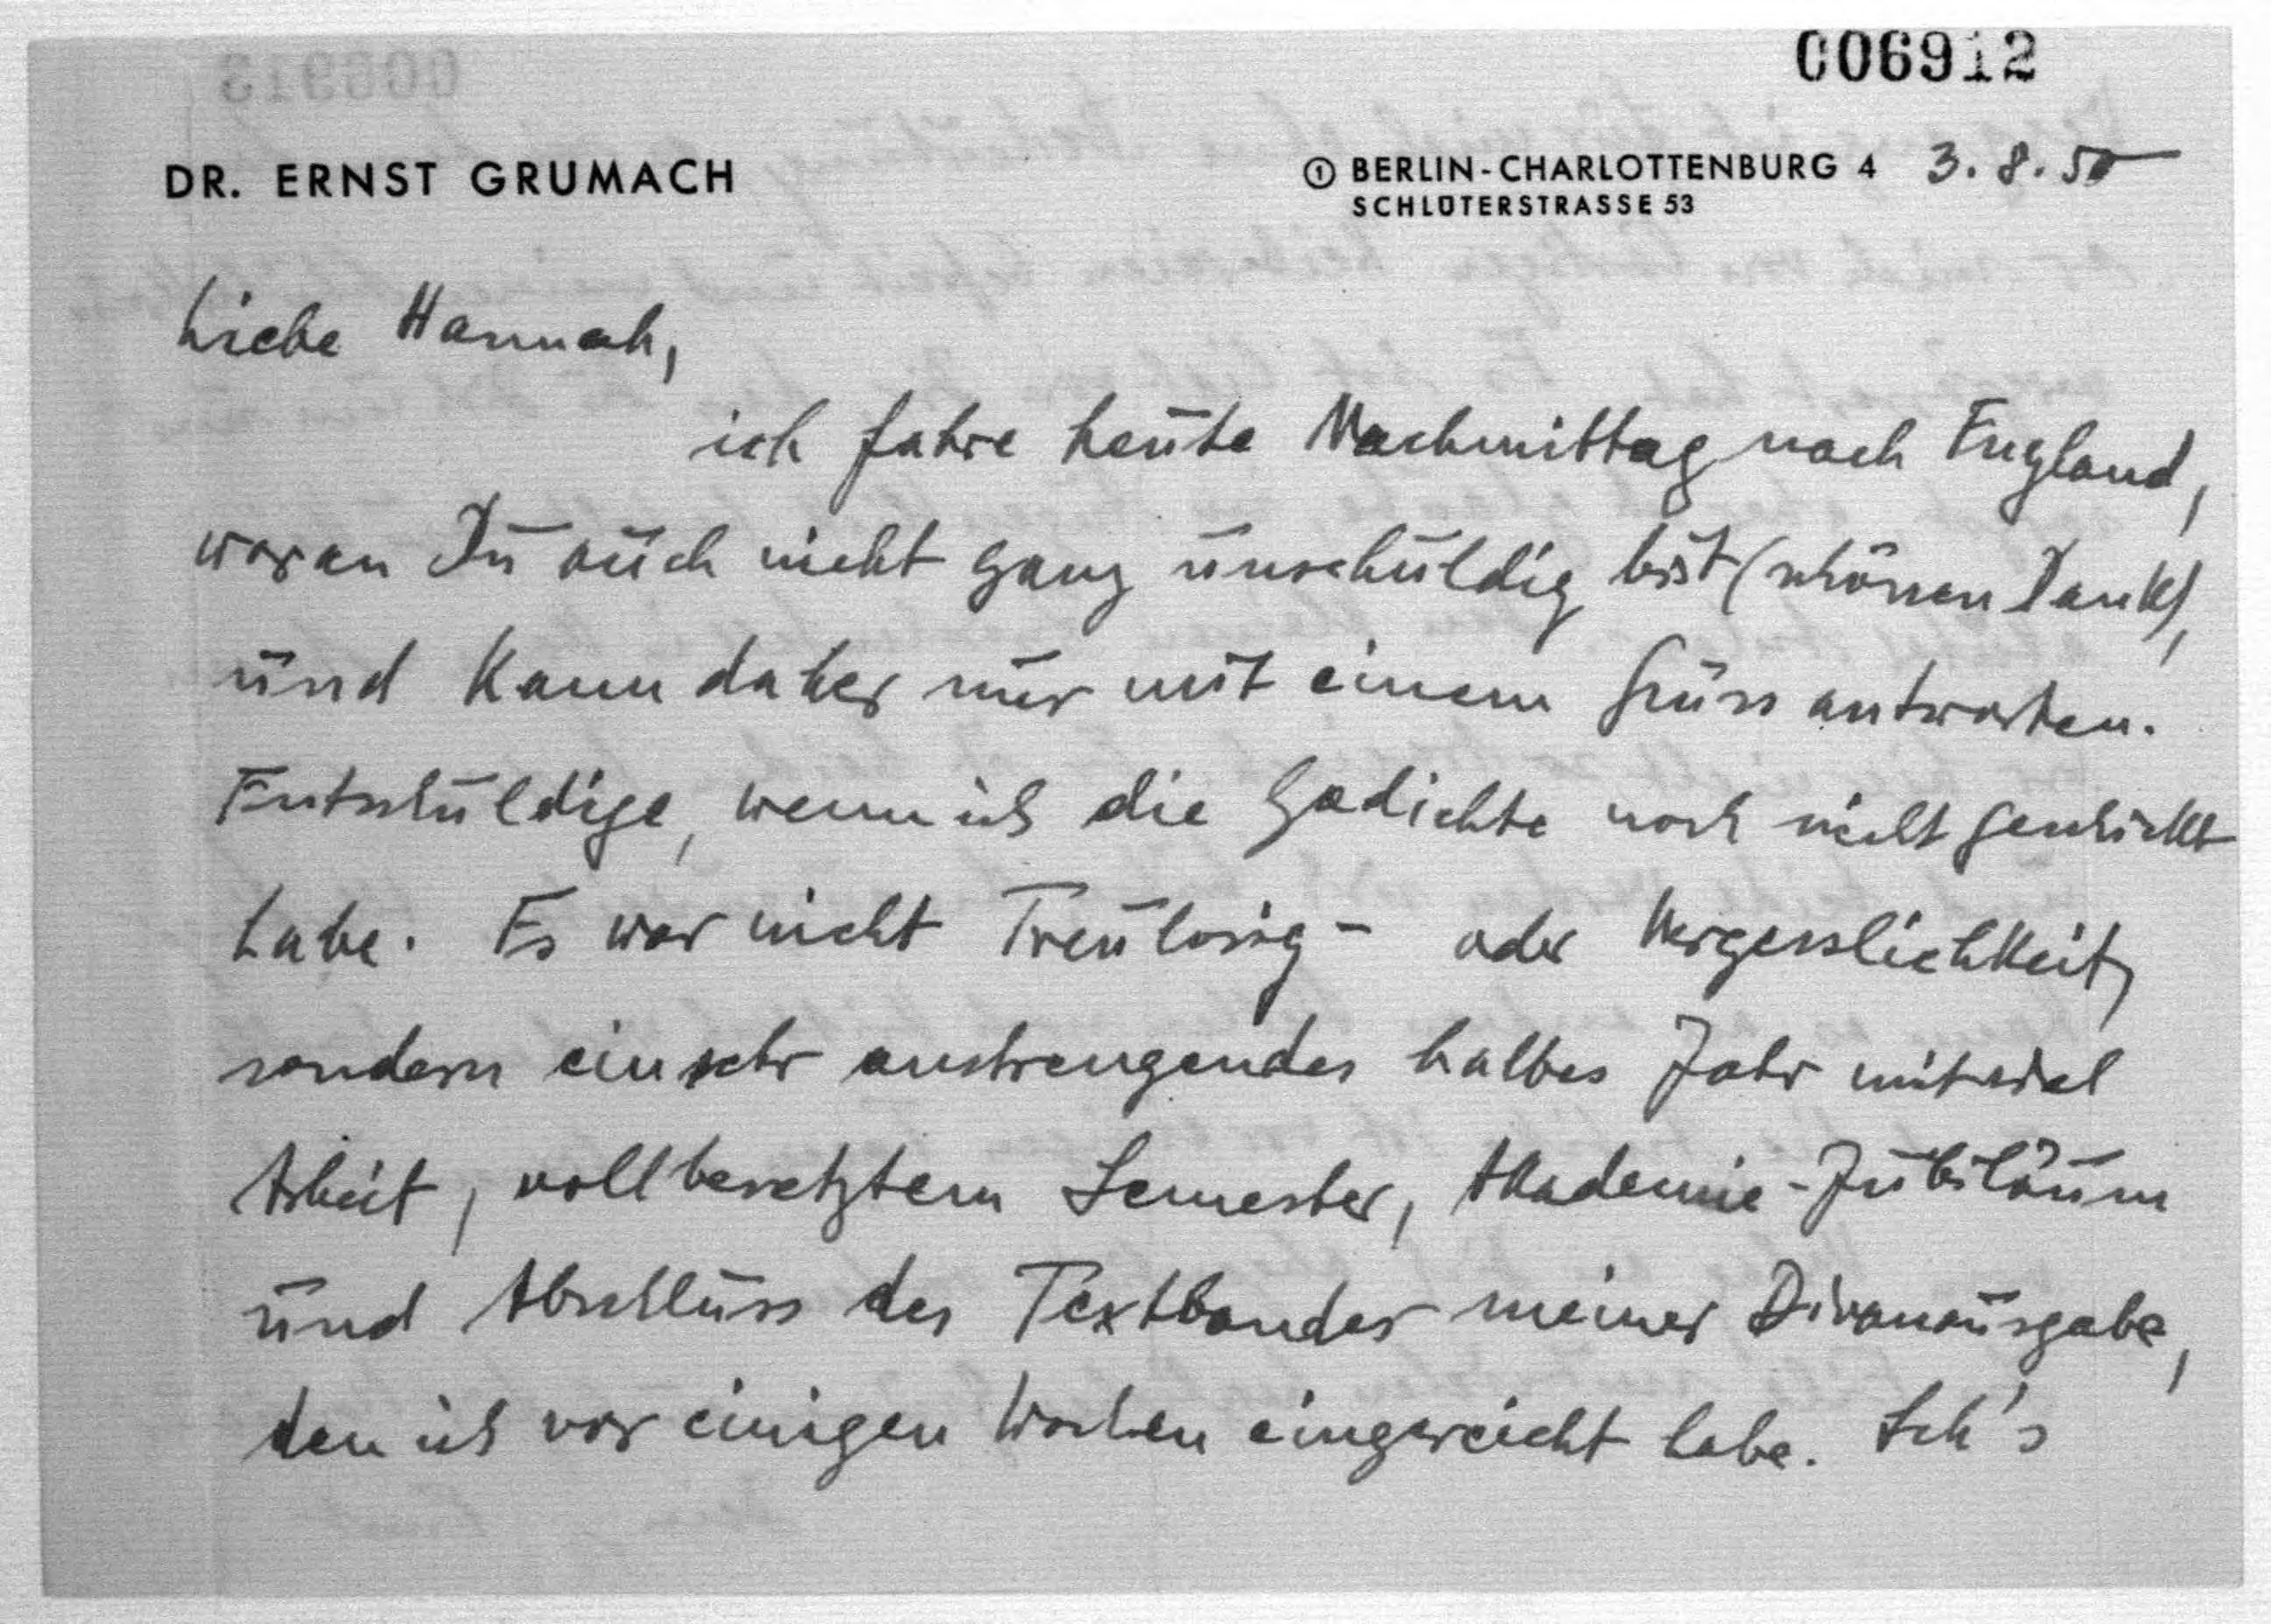 006912
DR. ERNST GRUMACH
① BERLIN-CHARLOTTENBURG 4 3.8.50
SCHLÜTERSTRASSE 53
Liebe Hannah,
ich fahre heute Nachmittag nach England,
woran Du auch nicht ganz unschuldig bist (schönen Dank),
und kann daher nur mit einem Gruss antworten.
Entschuldige, wenn ich die Gedichte noch nicht geschickt
habe. Es war nicht Treulosig- oder Vergesslichkeit,
sondern ein sehr anstrengendes halbes Jahr mit viel
Arbeit, vollbesetztem Semester, Akademie-Jubiläum
und Abschluss des Textbandes meiner Divanausgabe,
den ich vor einigen Wochen eingereicht habe. Seh's